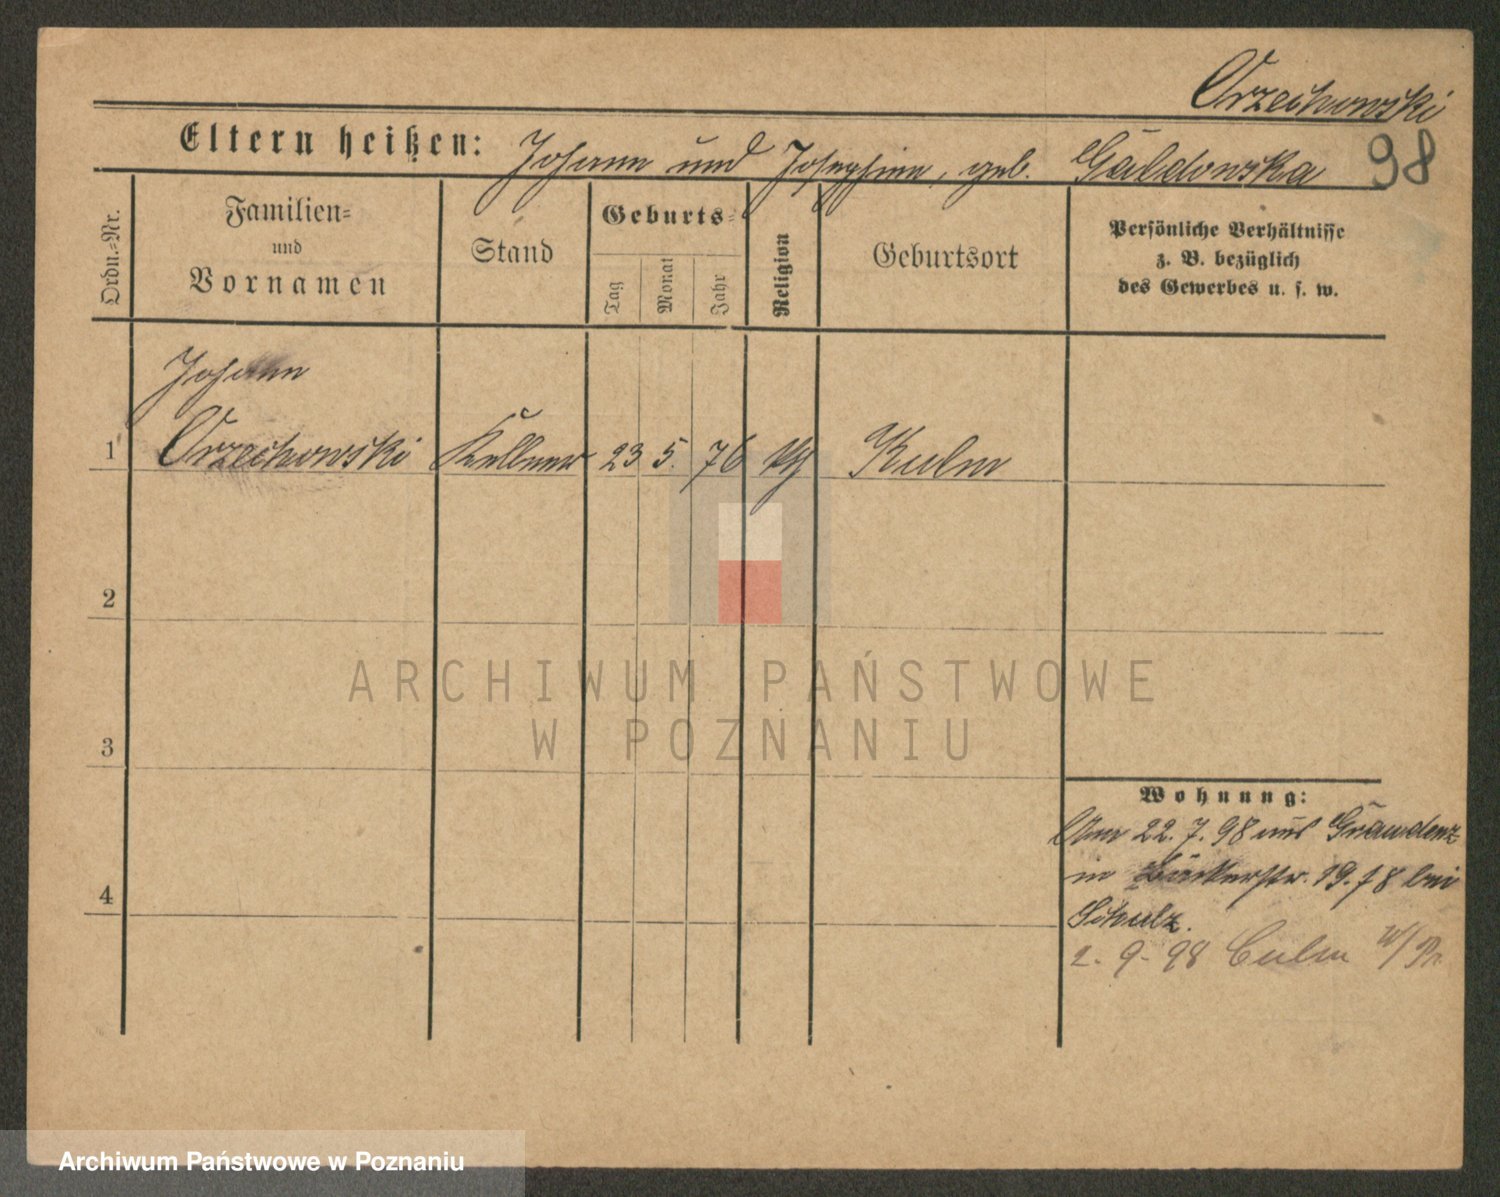 Orzechowski
98
Eltern heißen: Johann und Josephine, geb. Galdowska
Ordn.-Nr.
Familien-
und
Vornamen
Stand
Geburts-
Tag
Monat
Jahr
Religion
Geburtsort
Persönliche Verhältnisse
z. B. bezüglich
des Gewerbes u. s. w.
Johann
1 Orzechowski Kellner 23 5. 76 Kulm
2
3
4
Wohnung:
Am 22.7.98 aus Graudenz
in Bäckerstr. 19.78 bei
Schulz.
2-9-98 Culm W/Pr.
ARCHIWUM PAŃSTWOWE
W POZNANIU
Archiwum Państwowe w Poznaniu